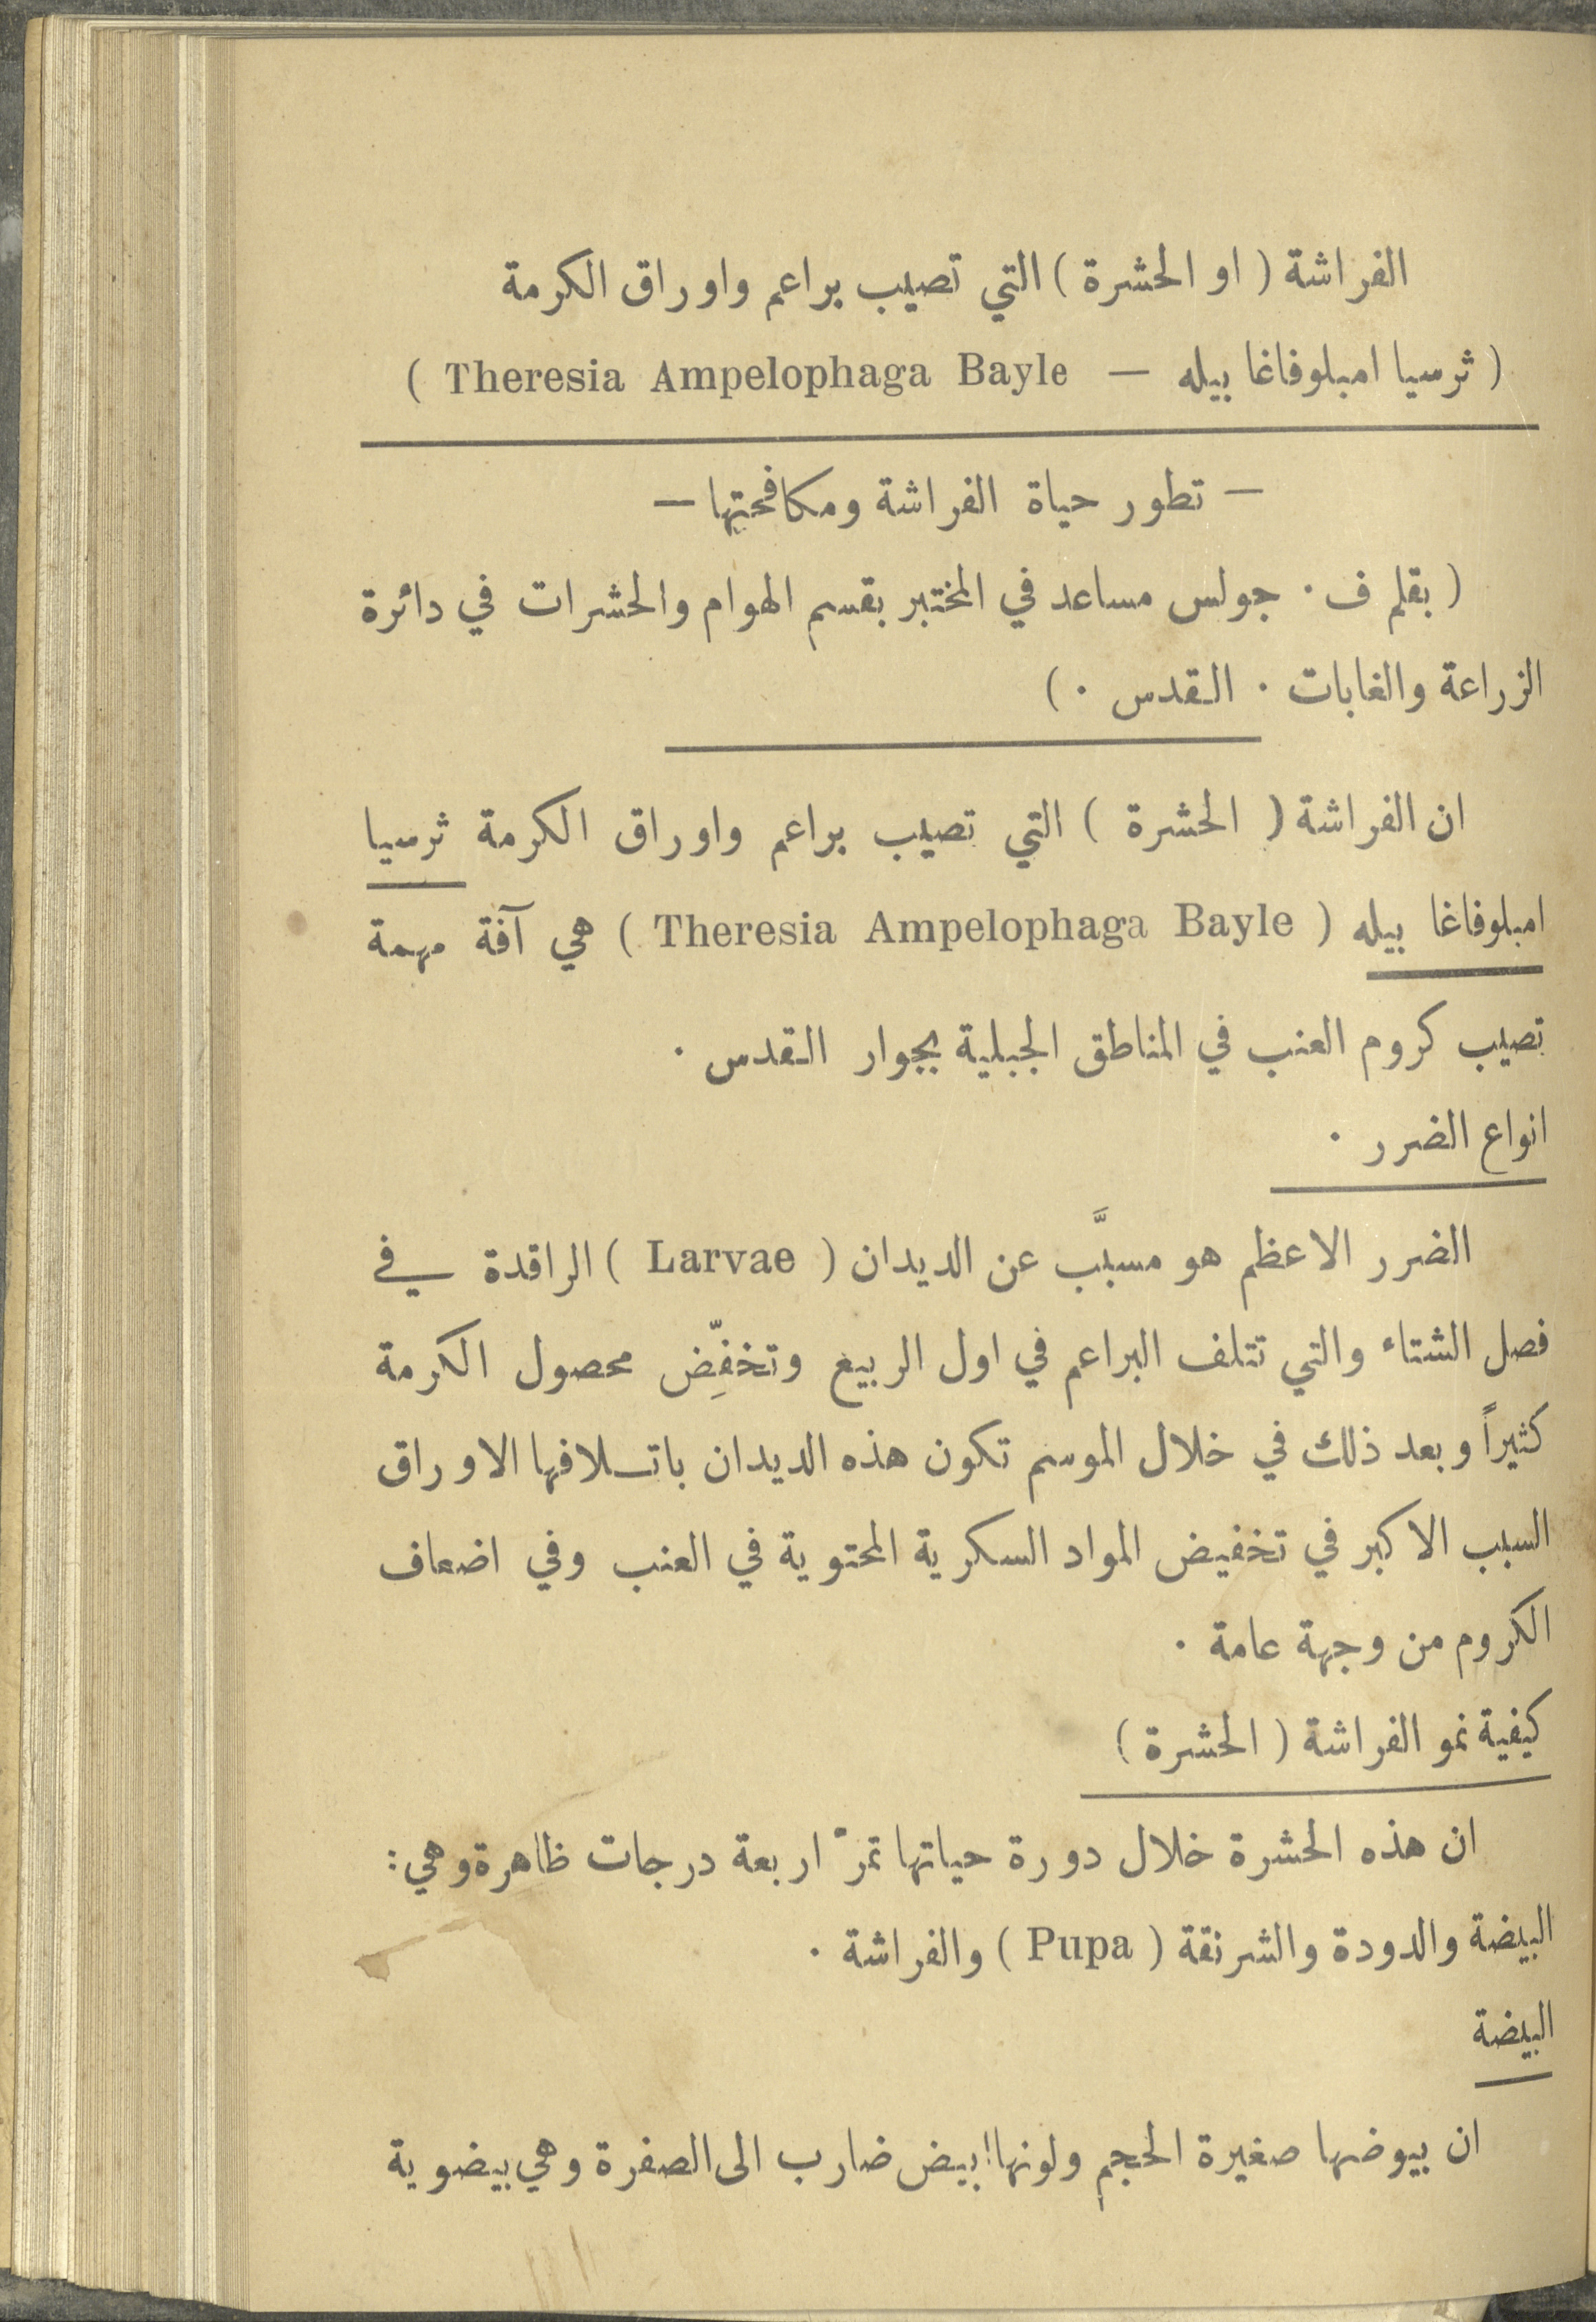 الفراشة ( او الحشرة ) التي تصيب براعم واوراق الكرمة
( ثرسيا امبلوفاغا بيله — Theresia Ampelophaga Bayle )
— تطور حياة الفراشة ومكافحتها —
( بقلم ف . جولس مساعد في المختبر بقسم الهوام والحشرات في دائرة
الزراعة والغابات . القدس . )
ان الفراشة ( الحشرة ) التي تصيب براعم واوراق الكرمة ثرسيا
امبلوفاغا بيله ( Theresia Ampelophaga Bayle ) هي آفة مهمة
تصيب كروم العنب في المناطق الجبلية بجوار القدس .
انواع الضرر .
الضرر الاعظم هو مسبَّب عن الديدان ( Larvae ) الراقدة في
فصل الشتاء والتي تتلف البراعم في اول الربيع وتخفِّض محصول الكرمة
كثيراً وبعد ذلك في خلال الموسم تكون هذه الديدان باتلافها الاوراق
السبب الاكبر في تخفيض المواد السكرية المحتوية في العنب وفي اضعاف
الكروم من وجهة عامة .
كيفية نمو الفراشة ( الحشرة )
ان هذه الحشرة خلال دورة حياتها تمرّ اربعة درجات ظاهرة وهي :
البيضة والدودة والشرنقة ( Pupa ) والفراشة .
البيضة
ان بيوضها صغيرة الحجم ولونها ابيض ضارب الى الصفرة وهي بيضوية